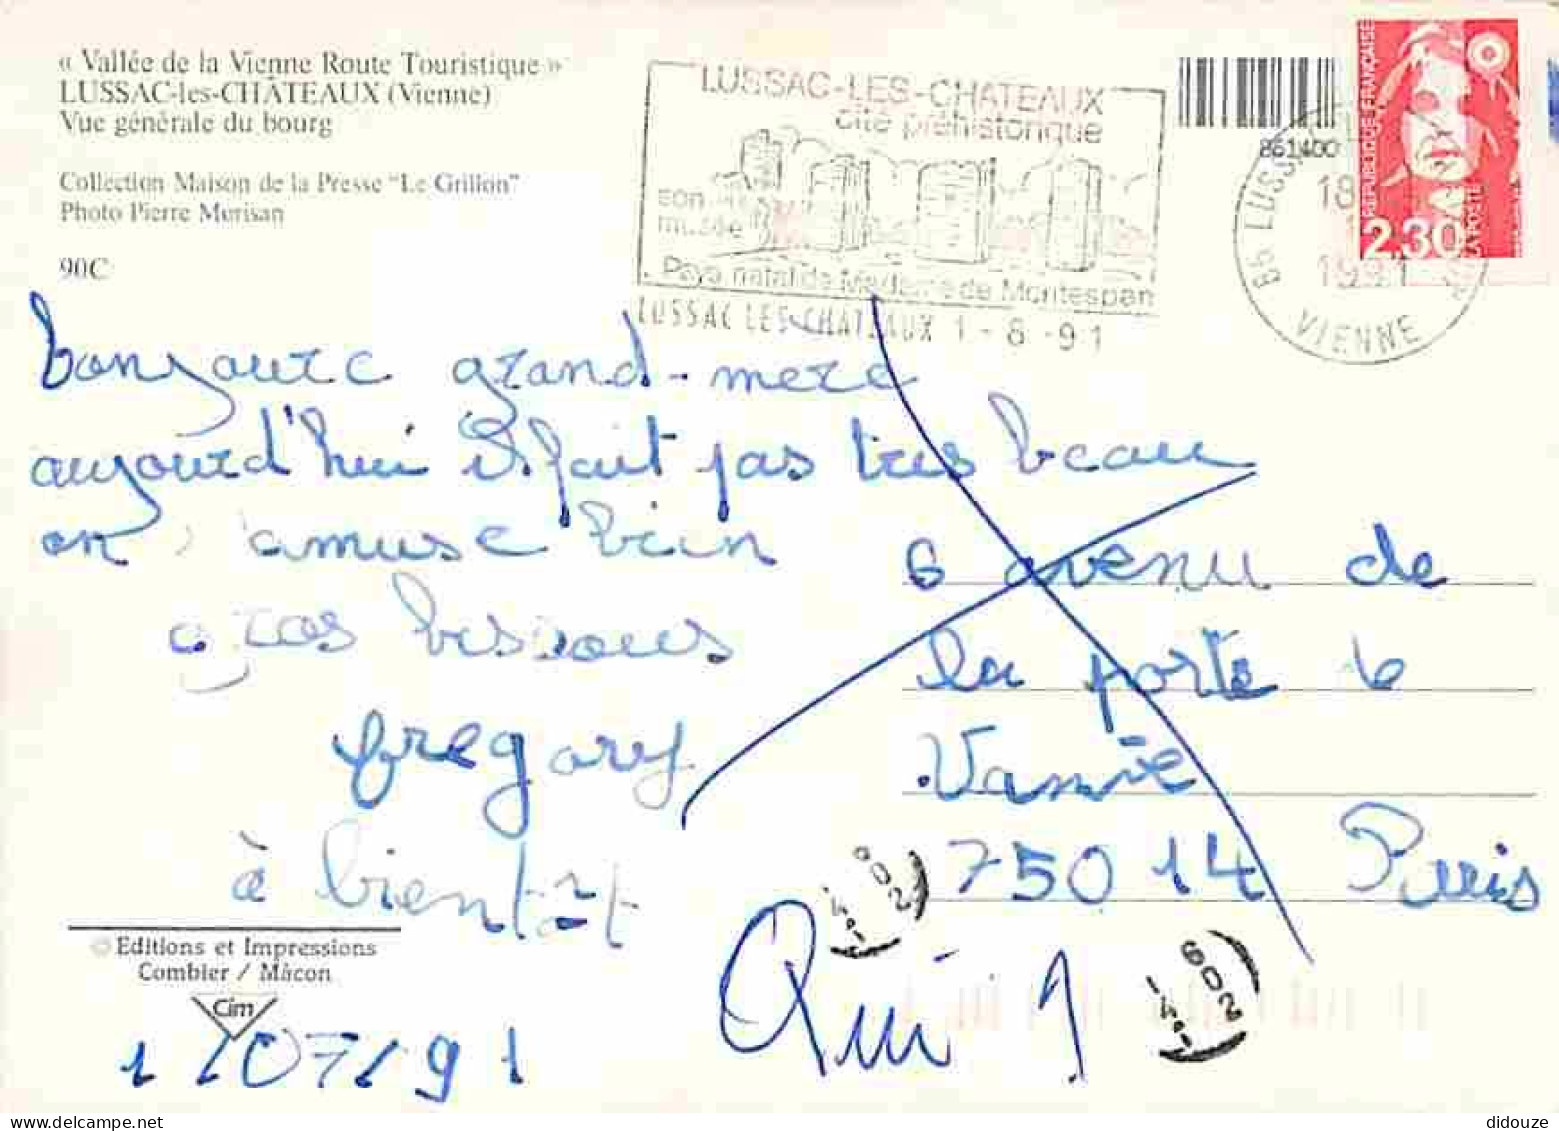 « Vallée de la Vienne Route Touristique »
LUSSAC-les-CHÂTEAUX (Vienne)
Vue générale du bourg
Collection Maison de la Presse "Le Grillon"
Photo Pierre Morisan
90C
LUSSAC-LES-CHATEAUX
cité préhistorique
son
musée
Pays natal de Madame de Montespan
LUSSAC LES CHATEAUX 1-8-91
861400
REPUBLIQUE FRANÇAISE
2,30
LA POSTE
86 LUSSAC
18
1991
VIENNE
bonjourc grand-mere
aujourd'hui il fait pas tres beau
on s'amuse bien
gros bissous
gregory
à bientôt
6 avenu de
la porte
Vanve
75014 Paris
Qui ?
602
602
Editions et Impressions
Combier / Mâcon
Cim
1/07/91
didouze